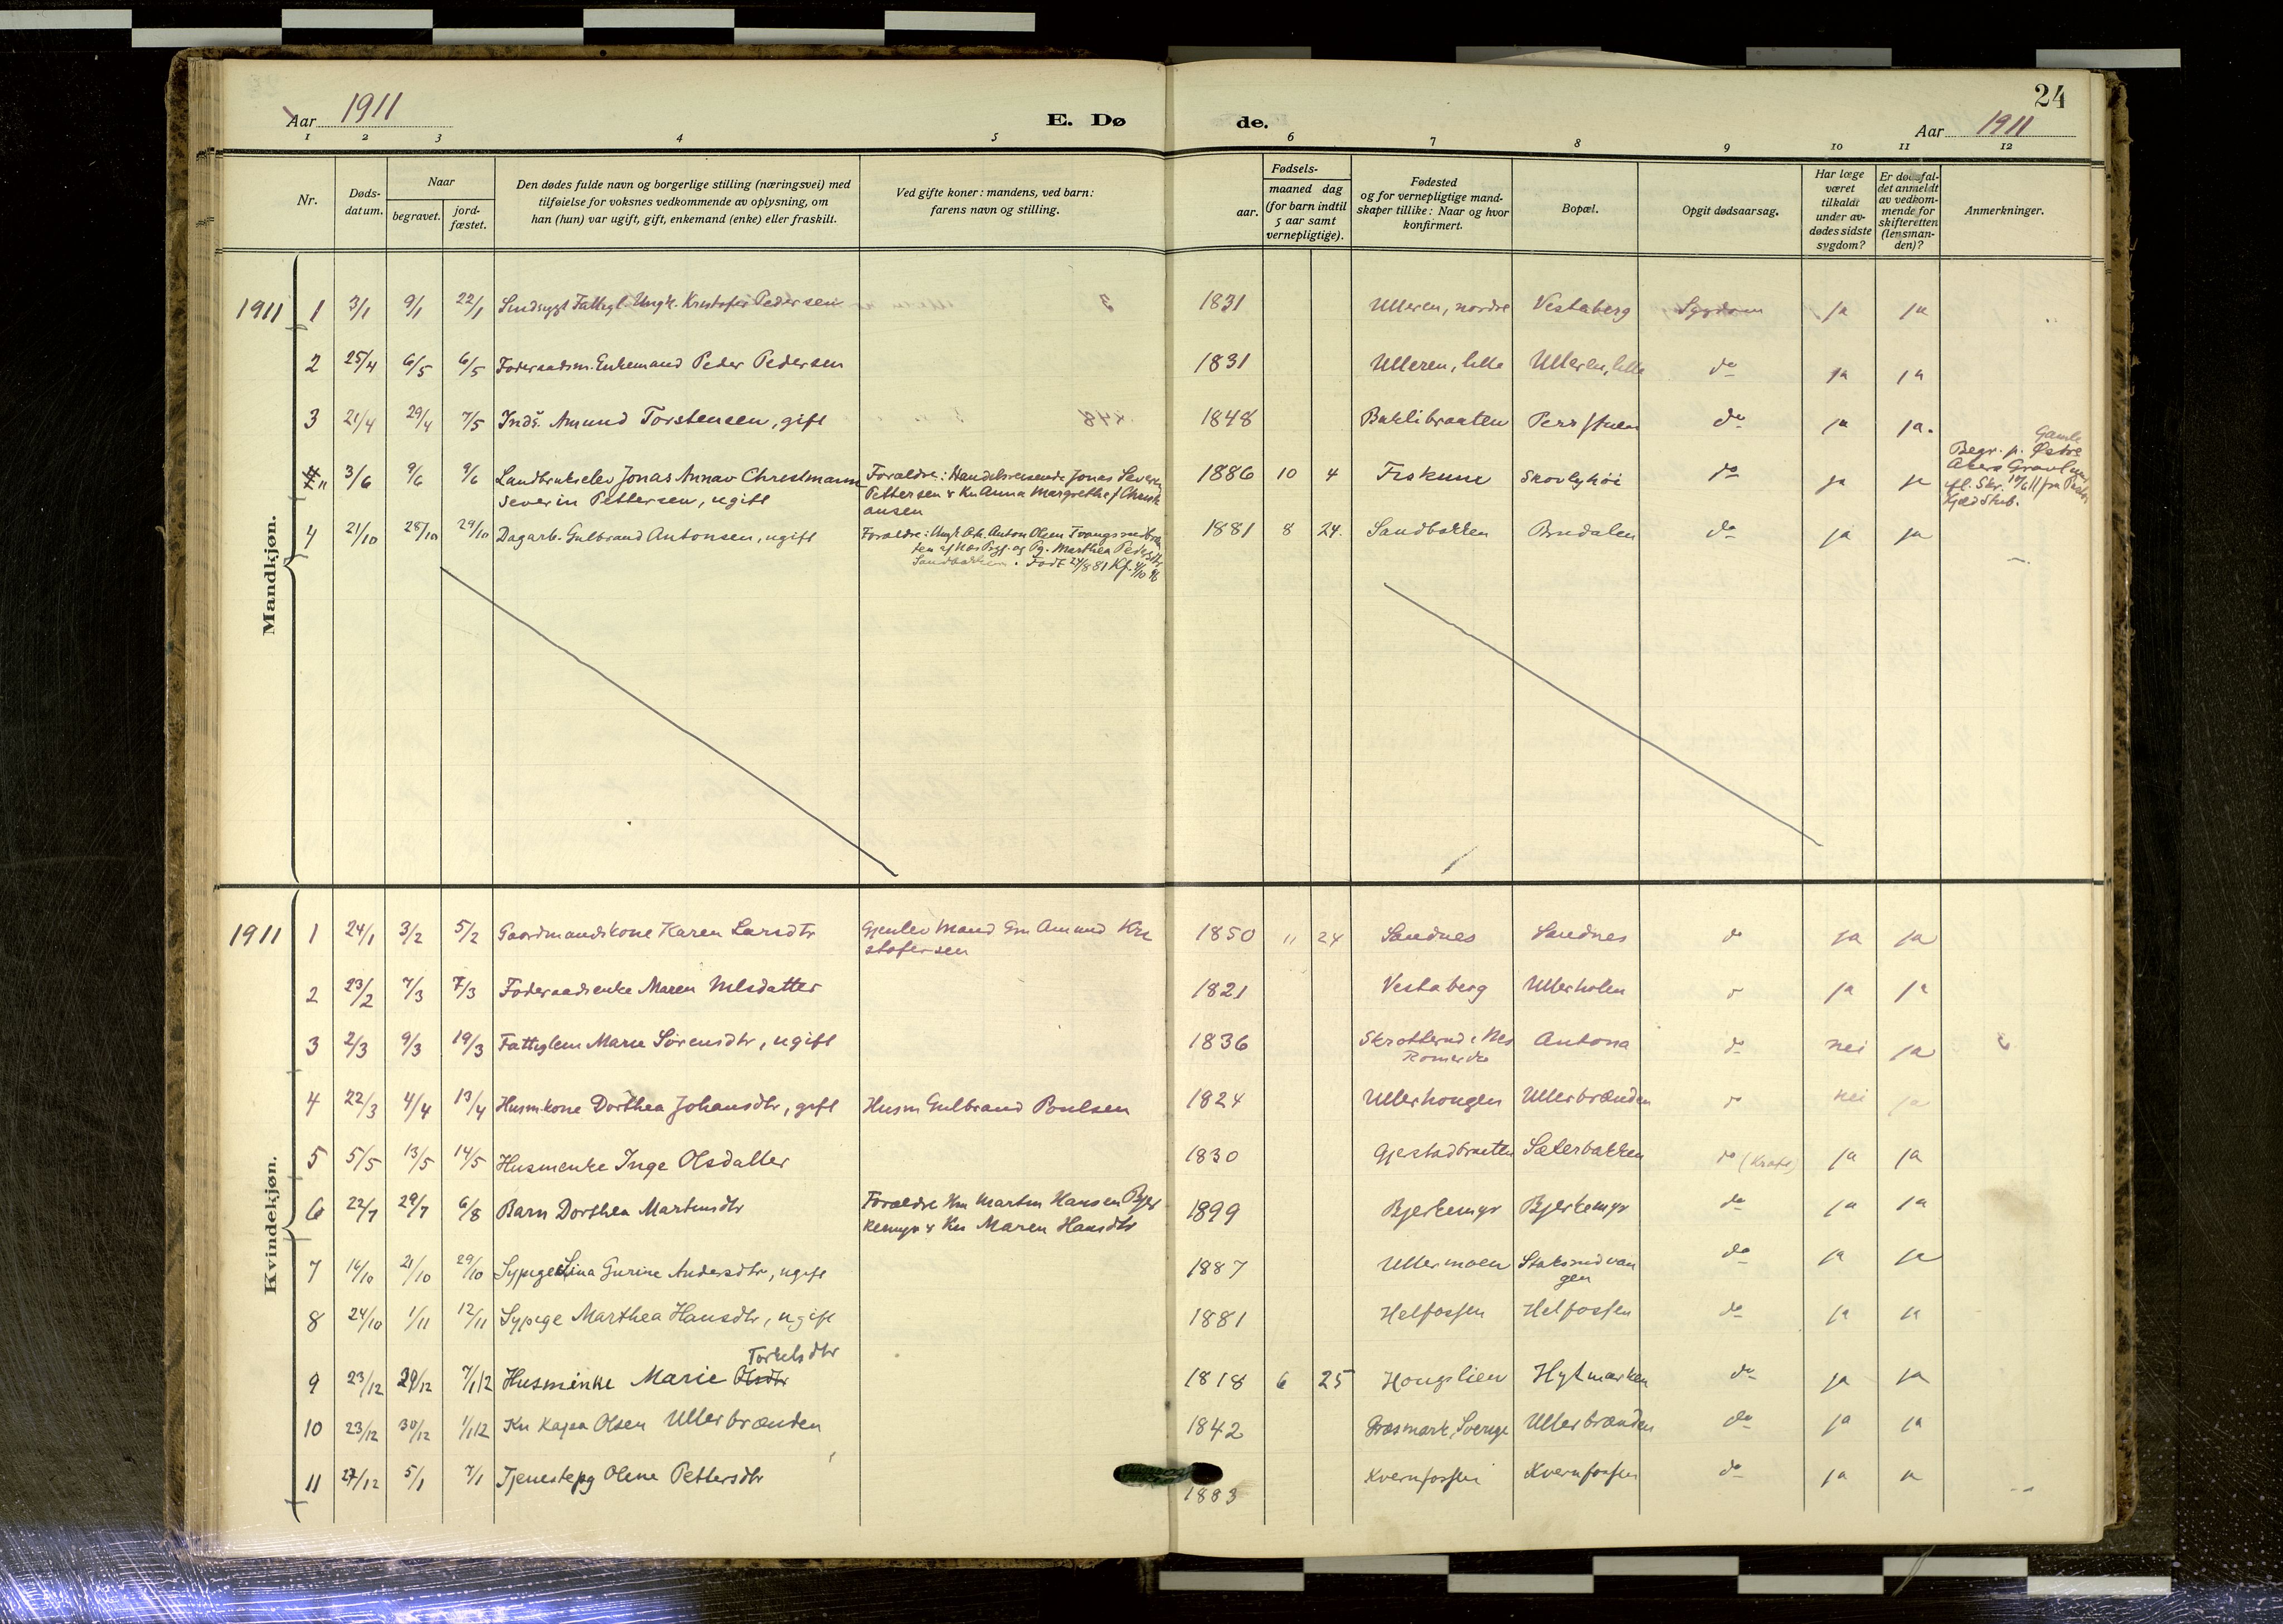 24
Aar 1911
E. Dø de.
Aar 1911
1 2 3 4 5 6 7 8 9 10 11 12
Nr.
Døds-datum.
Naar
begravet.
jord-fæstet.
Den dødes fulde navn og borgerlige stilling (næringsvei) med
tilføielse for voksnes vedkommende av oplysning, om
han (hun) var ugift, gift, enkemand (enke) eller fraskilt.
Ved gifte koner: mandens, ved barn:
farens navn og stilling.
Fødsels-
aar.
maaned dag
(for barn indtil
5 aar samt
vernepligtige).
Fødested
og for vernepligtige mand-
skaper tillike: Naar og hvor
konfirmert.
Bopæl.
Opgit dødsaarsag.
Har læge
været
tilkaldt
under av-
dødes sidste
sygdom?
Er dødsfal-
det anmeldt
av vedkom-
mende for
skifteretten
(lensman-
den)?
Anmerkninger.
Mandkjøn.
1911 1 3/1 9/1 22/1 Sindsygt Fattigl. Ungk. Kristofer Pedersen 1831 Ulleren, nordre Vestaberg Sygdom ja ja
2 25/4 6/5 6/5 Føderaadsm. Enkemand Peder Pedersen 1831 Ulleren, lille Ulleren, lille do ja ja
3 21/4 29/4 7/5 Inds. Amund Torstensen, gift 1848 Baklibraaten Persstuen do ja ja.
3/6 9/6 9/6 Landbrukselev Jonas Annav Christmann Forældre: Handelsreisende Jonas Severin 1886 10 4 Fiskum Skovlyhöi do ja ja
Severin Pettersen, ugift Pettersen & Ku Anna Margrethe f. Christi
ansen
Gamle
Begr. p. Østre
Akers Gravlund
4 21/10 28/10 29/10 Dagarb. Gulbrand Antonsen, ugift Forældre: Ungk. Anton Olsen 1881 8 24. Sandbakken Brudalen do ja ja
af Næs Prgj. og Pg. Marthea Pedersdtr
Sandbakken. Født 24/8 81
Kvindekjøn.
1911 1 24/1 3/2 5/2 Gaardmandskone Karen Larsdtr Gjenlev Mand Gm Amund Kri 1850 11 24 Sandnes Sandnes do ja ja
stofersen
2 23/2 7/3 7/3 Føderaadsenke Maren Nilsdatter 1821 Vestaberg Ullerholen do ja ja
3 2/3 9/3 19/3 Fattiglem Marie Sörensdtr, ugift 1836 Nes Antona do nei ja
Romerike
4 22/3 4/4 13/4 Husmkone Dorthea Johansdtr, gift Husm Gulbrand Poulsen 1824 Ullerhougen Ullerbrænden do nei ja
5 5/5 13/5 14/5 Husmenke Inge Olsdatter 1830 Gjestadbraaten Sæterbakken do (Kræft) ja ja
6 22/7 29/7 6/8 Barn Dorthea Martinsdtr Forældre Hm Martin Hansen Bjer 1899 Bjerkemyr Bjerkemyr do ja ja
kemyr & Ku Maren Hansdtr
7 16/10 21/10 29/10 Sypige Lina Gurine Andersdtr, ugift 1887 Ullermoen Staksrudvan do ja ja
gen
8 24/10 1/11 12/11 Sypige Marthea Hansdtr, ugift 1881 Helfossen Helfossen do ja ja
Torkelsdtr
9 23/12 29/12 7/1 12 Husmenke Marie Olsdtr 1818 6 25 Hougslien Hytmarken do ja ja
10 23/12 30/12 1/1 12 Ku Kajsa Olsen Ullerbrænden 1842 Græsmark, Sverige Ullerbrænden do ja ja
11 27/12 5/1 7/1 Tjenestepg Oline Pettersdtr 1883 Kvernfossen Kvernfossen do ja ja